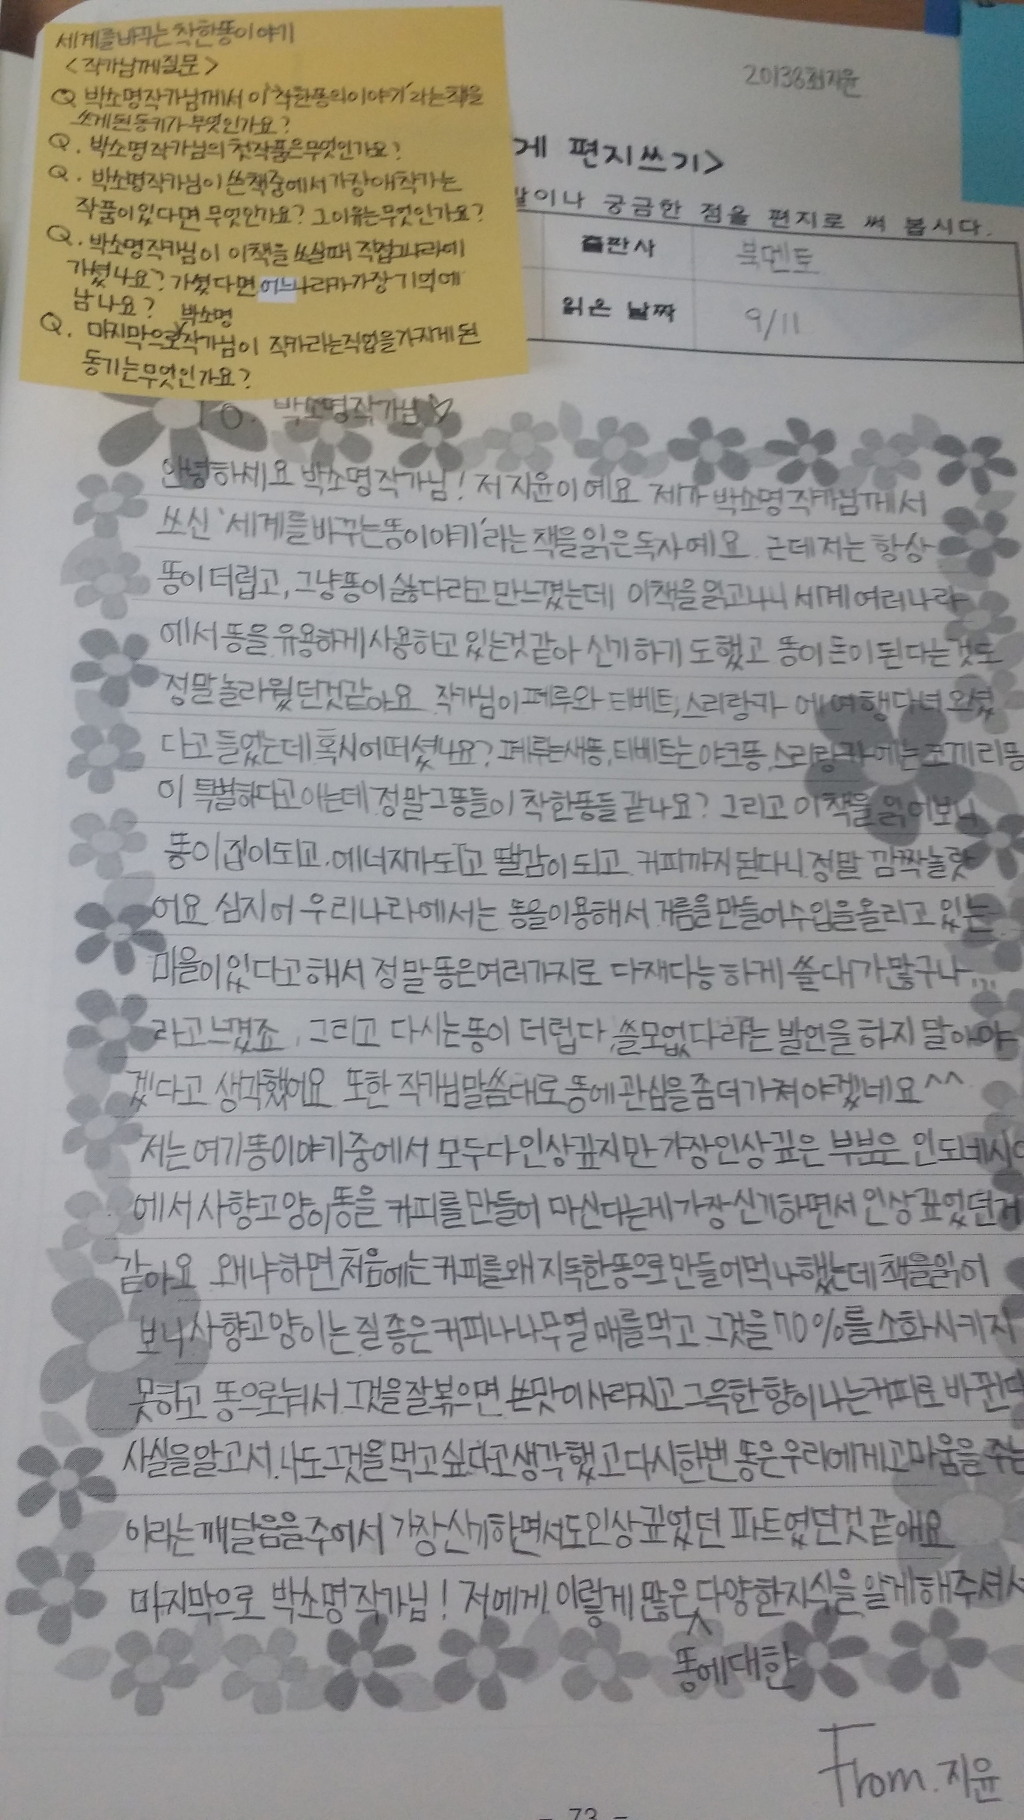 세계를 바꾸는 착한똥이야기
<작가님께질문>
Q 박소명작가님께서 이 '착한똥의이야기'라는책을
쓰게된동기가무엇인가요?
Q. 박소명작가님의 첫작품은무엇인가요?
Q. 박소명작가님이 쓴책중에서 가장애착가는
작품이있다면 무엇인가요? 그이유는무엇인가요?
Q. 박소명작가님이 이책을쓰실때 직접나라에
가셨나요? 가셨다면 어느나라가가장기억에
남나요?
박소명
Q. 마지막으로작가님이 작가라는직업을가지게된
동기는무엇인가요?
20138최지윤
게 편지쓰기>
말이나 궁금한 점을 편지로 써 봅시다.
출판사 북멘토
읽은 날짜 9/11
TO. 박소명작가님♡
안녕하세요 박소명작가님! 저 지윤이에요 제가 박소명작가님께서
쓰신 '세계를바꾸는똥이야기'라는책을읽은독자예요. 근데저는항상
똥이더럽고, 그냥똥이싫다라고만느꼈는데 이책을읽고나니 세계여러나라
에서 똥을 유용하게사용하고 있는것같아 신기하기도했고 똥이돈이된다는것도
정말놀라웠던것같아요. 작가님이페루와 티베트,스리랑카 에여행다녀오셨
다고들었는데혹시어떠셨나요? 페루는새똥,티베트는야크똥,스리랑카에는코끼리똥
이 특별하다고아는데정말그똥들이 착한똥들 같나요? 그리고 이책을읽어보니
똥이집이되고,에너지가되고 땔감이되고 커피까지된다니정말 깜짝놀랏
어요 심지어 우리나라에서는 똥을이용해서 거름을만들어수입을올리고 있는
마을이있다고해서 정말똥은여러가지로 다재다능하게 쓸대가많구나...
라고느꼈죠. 그리고 다시는똥이 더럽다,쓸모없다라는 발언을하지말아야
겠다고 생각했어요 또한 작가님말씀대로똥에관심을좀더가져야겠네요^^
저는여기똥이야기중에서 모두다인상깊지만 가장인상깊은 부분은 인도네시아
에서사향고양이똥을 커피를만들어 마신다는게가장신기하면서 인상깊었던거
같아요 왜냐하면처음에는커피를왜지독한똥으로만들어먹나했는데책을읽어
보니사향고양이는질좋은커피나나무열매를먹고 그것을70%를소화시키지
못하고 똥으로눠서 그것을잘볶으면 쓴맛이사라지고그윽한향이나는커피로바뀐다
사실을알고서,나도그것을먹고싶다고생각했고다시한번똥은우리에게고마움을주는
이라는깨달음을주어서 가장신기하면서도인상깊었던 파트였던것같애요
마지막으로 박소명작가님! 저에게 이렇게많은 다양한지식을 알게해주셔서
똥에대한
From.지윤
- 73 -